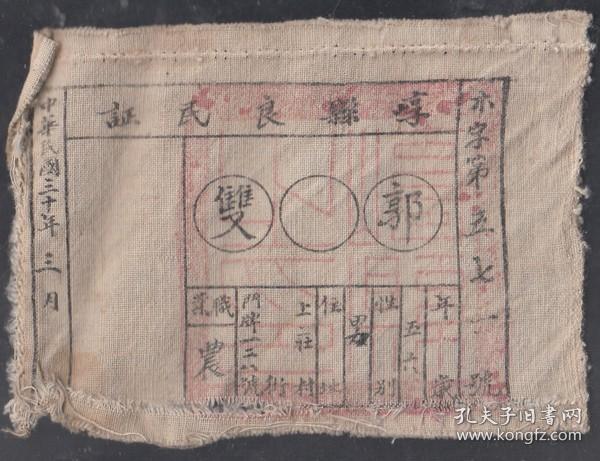 字第五七一號
崞縣良民証
郭 雙
年五六歲
性別男
住址上社村街
門牌一二八號
職業農
中華民國三十年三月
孔夫子旧书网
www.kongfz.com